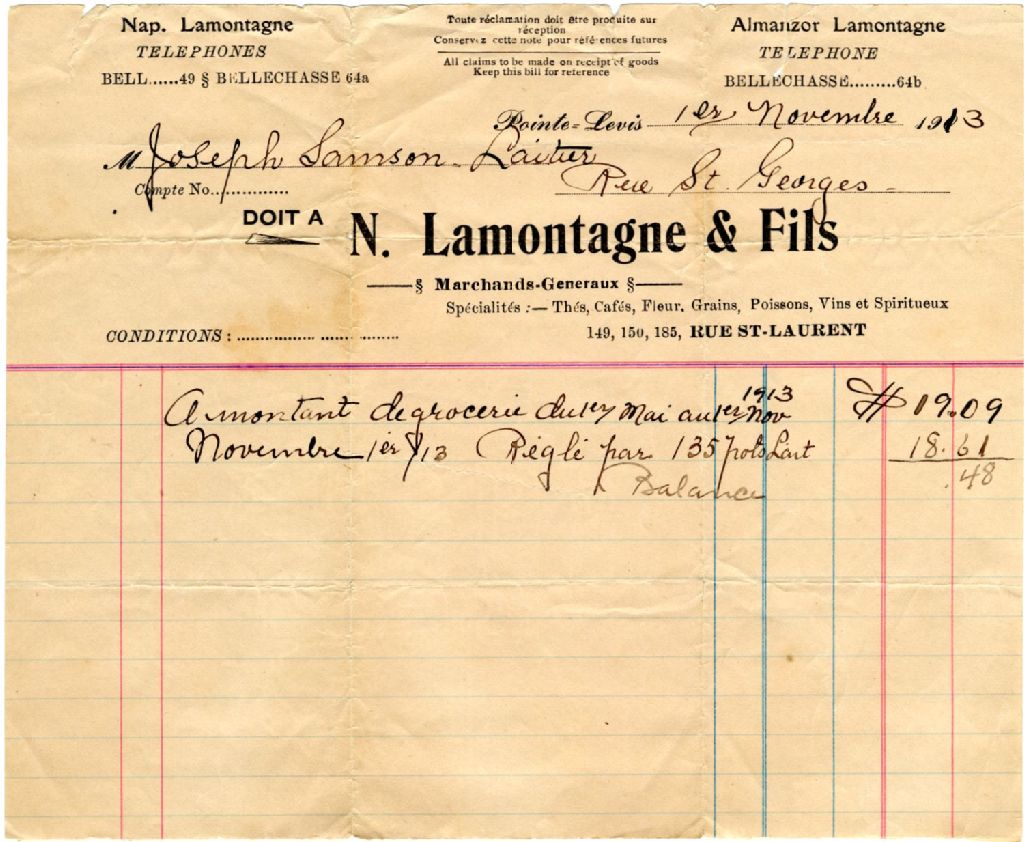 Nap. Lamontagne
TELEPHONES
BELL......49 § BELLECHASSE 64a
Toute réclamation doit être produite sur
réception
Conservez cette note pour références futures
All claims to be made on receipt of goods
Keep this bill for reference
Almanzor Lamontagne
TELEPHONE
BELLECHASSE.........64b
Pointe-Levis 1er Novembre 1913
M Joseph Samson - Laitier
Compte No...............
Rue St. Georges -
DOIT A
N. Lamontagne & Fils
§ Marchands-Generaux §
Spécialités :— Thés, Cafés, Fleur, Grains, Poissons, Vins et Spiritueux
CONDITIONS : ................. ...... ..........
149, 150, 185, RUE ST-LAURENT
A montant de grocerie du 1er Mai au 1er Nov 1913 $ 19.09
Novembre 1er/13 Réglé par 135 pots Lait 18.61
Balance .48